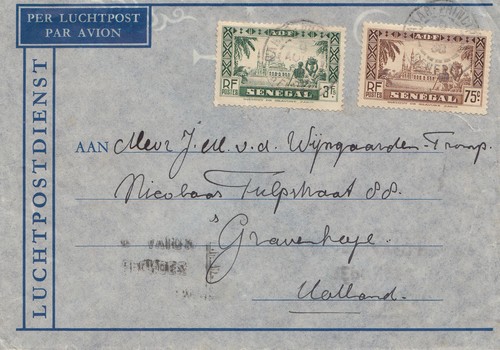 PER LUCHTPOST
PAR AVION
LUCHTPOSTDIENST
AOF
RF
POSTES
3F
SENEGAL
AOF
RF
POSTES
75c
SENEGAL
AAN Mevr J.M. v.d. Wijngaarden-Tromp.
Nicolaas Tulpstraat 88.
's Gravenhage.
Holland.